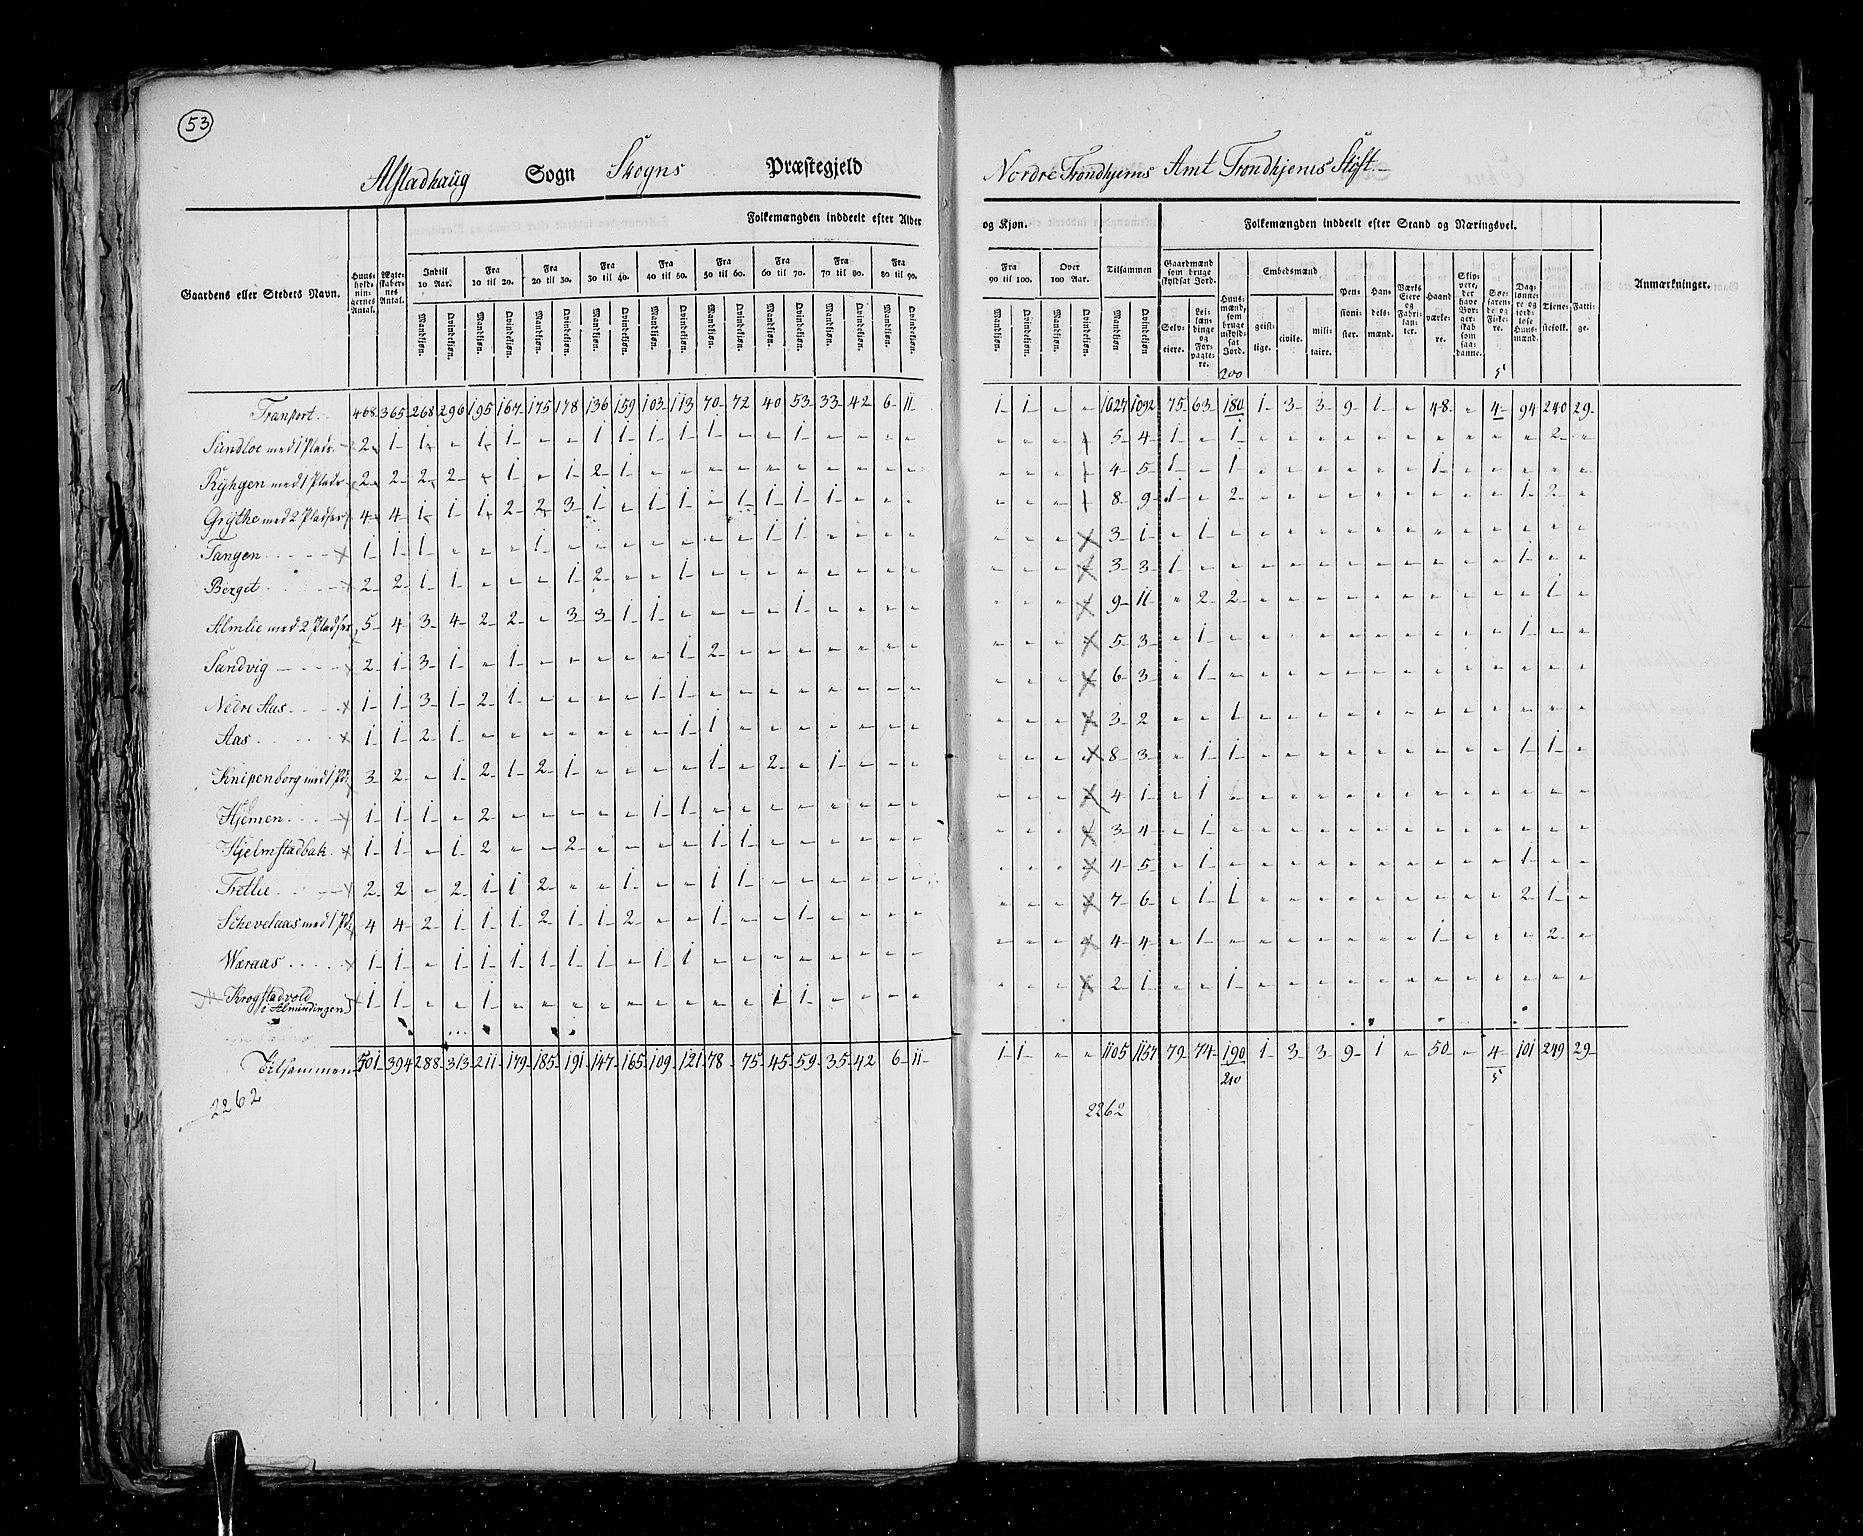 53
Alstadhaug Sogn Skogns Præstegjeld
Nordre Trondhjems Amt Trondhjems Stift.
Folkemængden inddeelt efter Alder
og Kjøn.
Folkemængden inddeelt efter Stand og Næringsvei.
Gaardens eller Stedets Navn.
Huusholdningernes Antal.
Ægteskabernes Antal.
Indtil 10 Aar.
Fra 10 til 20.
Fra 20 til 30.
Fra 30 til 40.
Fra 40 til 50.
Fra 50 til 60.
Fra 60 til 70.
Fra 70 til 80.
Fra 80 til 90.
Fra 90 til 100.
Over 100 Aar.
Tilsammen
Mandkjøn. Qvindekjøn.
Gaardmænd som bruge skyldsat Jord.
Selveiere.
Leilændinge og Forpagtere.
Huusmænd, som bruge uskyldsat Jord.
Embedsmænd
geistlige.
civile.
militaire.
Pensionister.
Handelsmænd.
Værks Eiere og Fabrikanter.
Haandværkere.
Skippere, der have Borgerskab som saadanne.
Søefarende og Fiskere.
Daglønnere og jordløse Huusmænd.
Tienestefolk.
Fattige.
Anmærkninger.
200 5
Transport. 468 365 268 296 195 167 175 178 136 159 103 113 70 72 40 53 33 42 6 11 1 1 " " 1027 1092 75 63 180 1 3 3 9 1 " 48 " 4 94 240 29
Sundloe med 1 Plads 2 1 1 " 1 1 " " 1 1 1 1 1 " " 1 " " " " " " " " 5 4 1 " 1 " " " " " " " " " " 2 "
Ryhgen med 1 Plads 2 2 2 2 " 1 " 1 2 1 " " " " " " " " " " " " " " 4 5 1 " 1 " " " " " " 1 " " " " "
Grythe med 2 Pladser 4 4 1 1 1 2 2 3 1 " 1 1 " 1 1 1 1 " " " " " " " 8 9 1 " 2 " " " " " " " " " 1 2 "
Tangen 1 1 1 " " " 1 " " " " " " " 1 1 " " " " " " " " 3 1 " 1 " " " " " " " " " " " " "
Berget 2 2 1 1 " " " 1 2 " " 1 " " " " " " " " " " " " 3 3 1 " " " " " " " " " " " 1 " "
Almlie med 2 Pladser 5 4 3 4 2 2 " 3 3 1 1 " " " " 1 " " " " " " " " 9 11 " 2 2 " " " " " " " " " " 1 "
Sundvig 2 1 3 1 " 1 " " " " " 1 2 " " " " " " " " " " " 5 3 " 1 " " " " " " " " " " 1 " "
Nedre Aas 1 1 3 1 2 1 " " " " 1 1 " " " " " " " " " " " " 6 3 " 1 " " " " " " " " " " " " "
Aas 1 1 2 1 " " " " " " " 1 1 " " " " " " " " " " " 3 2 " " 1 " " " " " " " " " " " "
Knipenborg med 1 Pds 3 2 " 1 2 1 2 1 " " " " 1 " 2 " 1 " " " " " " " 8 3 " 1 1 " " " " " " " " " 1 1 "
Hjemen 1 1 1 " 2 " " " " " 1 1 " " " " " " " " " " " " 4 1 " 1 " " " " " " " " " " " " "
Hjelmstadbak 1 1 " 1 2 " " 2 " " " " 1 1 " " " " " " " " " " 3 4 " 1 " " " " " " " " " " " " "
Tretlie 2 2 " 2 1 1 2 " " 1 " " 1 1 " " " " " " " " " " 4 5 " 1 " " " " " " " " " " 1 " "
Schevelaas med 1 Pds 4 4 2 1 1 1 2 1 1 2 " " 1 " " 1 " " " " " " " " 7 6 " 1 1 " " " " " " " " " 2 1 "
Wæraas 1 1 " 1 1 1 1 1 1 " 1 1 " " " " " " " " " " " " 4 4 " 1 " " " " " " " 1 " " " 2 "
Krogstadvold
i Almindingen 1 1 " " 1 " " " " " " " " " 1 1 " " " " " " " " 2 1 " " 1 " " " " " " " " " " " "
Tilsammen 501 394 288 313 211 179 185 191 147 165 109 121 78 75 45 59 35 42 6 11 1 1 " " 1105 1157 79 74 190 1 3 3 9 1 " 50 " 4 101 249 29
210 5
2262
2262